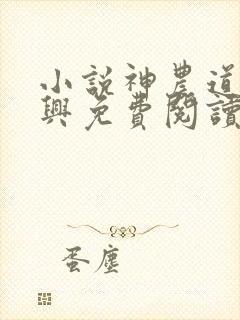 小說神農道
興免費閱讀
蛋塵